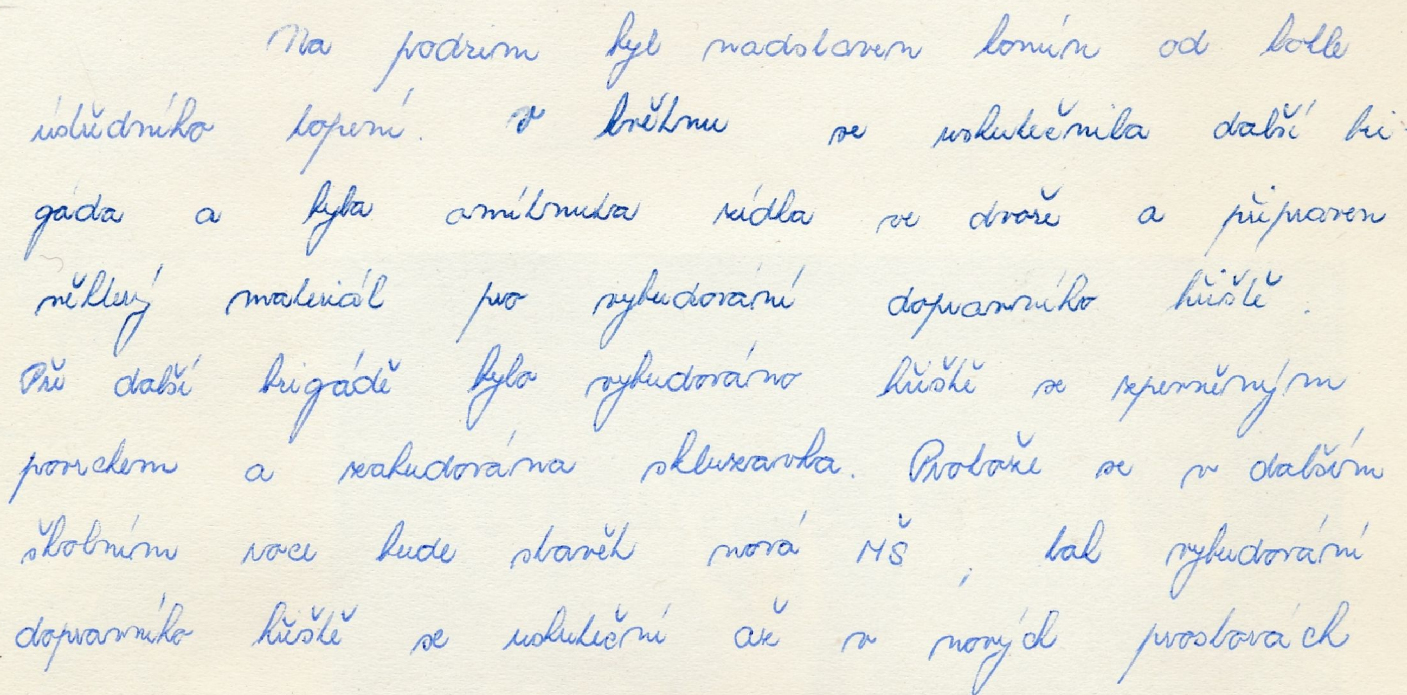 Na podzim byl nadstaven komín od kotle
ústředního topení. V květnu se uskutečnila další bri-
gáda a byla omítnuta zídka ve dvoře a připraven
některý materiál pro vybudování dopravního hřiště.
Při další brigádě bylo vybudováno hřiště se zpevněným
povrchem a zabudována skluzavka. Protože se v dalším
školním roce bude stavět nová MŠ, tak vybudování
dopravního hřiště se uskuteční až v nových prostorách